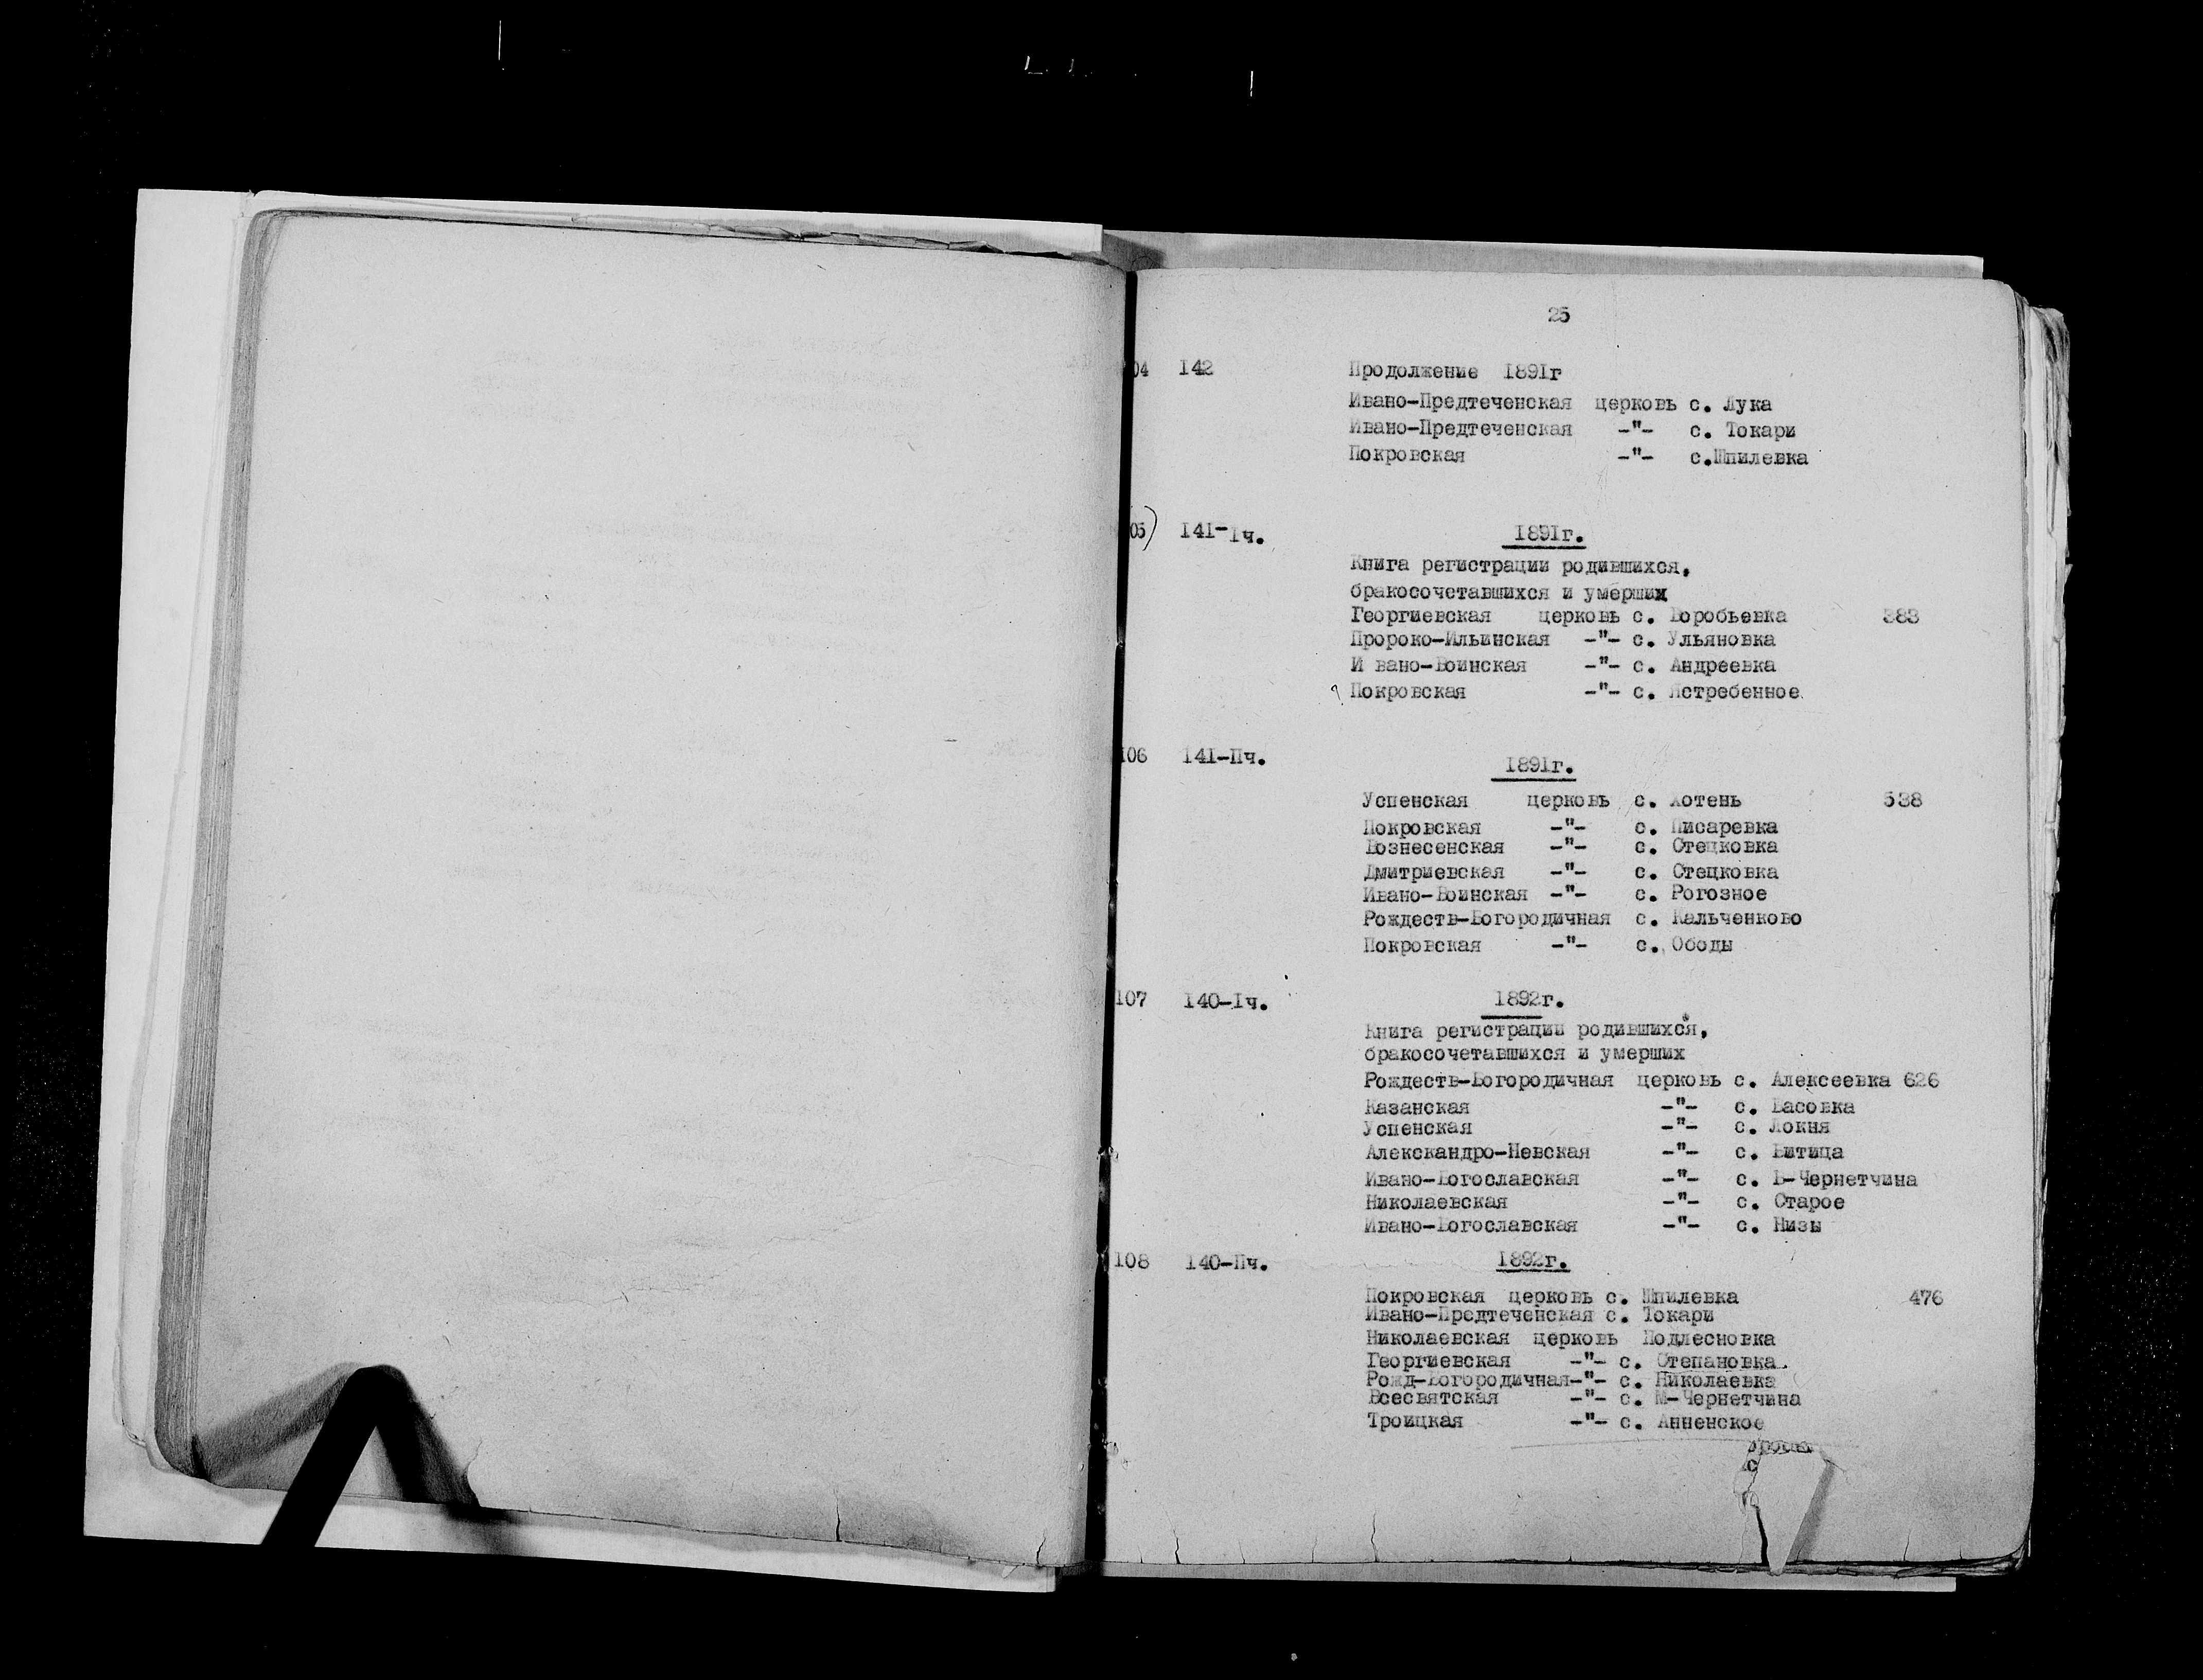 25
04 142 Продолжение 1891г
Ивано-Предтеченская церковь с. Лука
Ивано-Предтеченская -"- с. Токари
Покровская -"- с.Шпилевка
05) 141-Iч. 1891г.
Книга регистрации родившихся,
бракосочетавшихся и умерших
Георгиевская церковь с. Воробьевка 383
Пророко-Ильинская -"- с. Ульяновка
И вано-Воинская -"- с. Андреевка
Покровская -"- с. Ястребенное
106 141-Пч. 1891г.
Успенская церковь с. Хотень 538
Покровская -"- с. Писаревка
Вознесенская -"- с. Стецковка
Дмитриевская -"- с. Стецковка
Ивано-Воинская -"- с. Рогозное
Рождеств-Богородичная с. Кальченково
Покровская -"- с. Ободы
107 140-Iч. 1892г.
Книга регистрации родившихся,
бракосочетавшихся и умерших
Рождеств-Богородичная церковь с. Алексеевка 626
Казанская -"- с. Басовка
Успенская -"- с. Локня
Александро-Невская -"- с. Битица
Ивано-Богославская -"- с. В-Чернетчина
Николаевская -"- с. Старое
Ивано-Богославская -"- с. Низы
108 140-Пч. 1892г.
Покровская церковь с. Шпилевка 476
Ивано-Предтеченская с. Токари
Николаевская церковь Подлесновка
Георгиевская -"- с. Степановка.
Рожд-Богородичная-"- с. Николаевка
Всесвятская -"- с. М-Чернетчина
Троицкая -"- с. Анненское